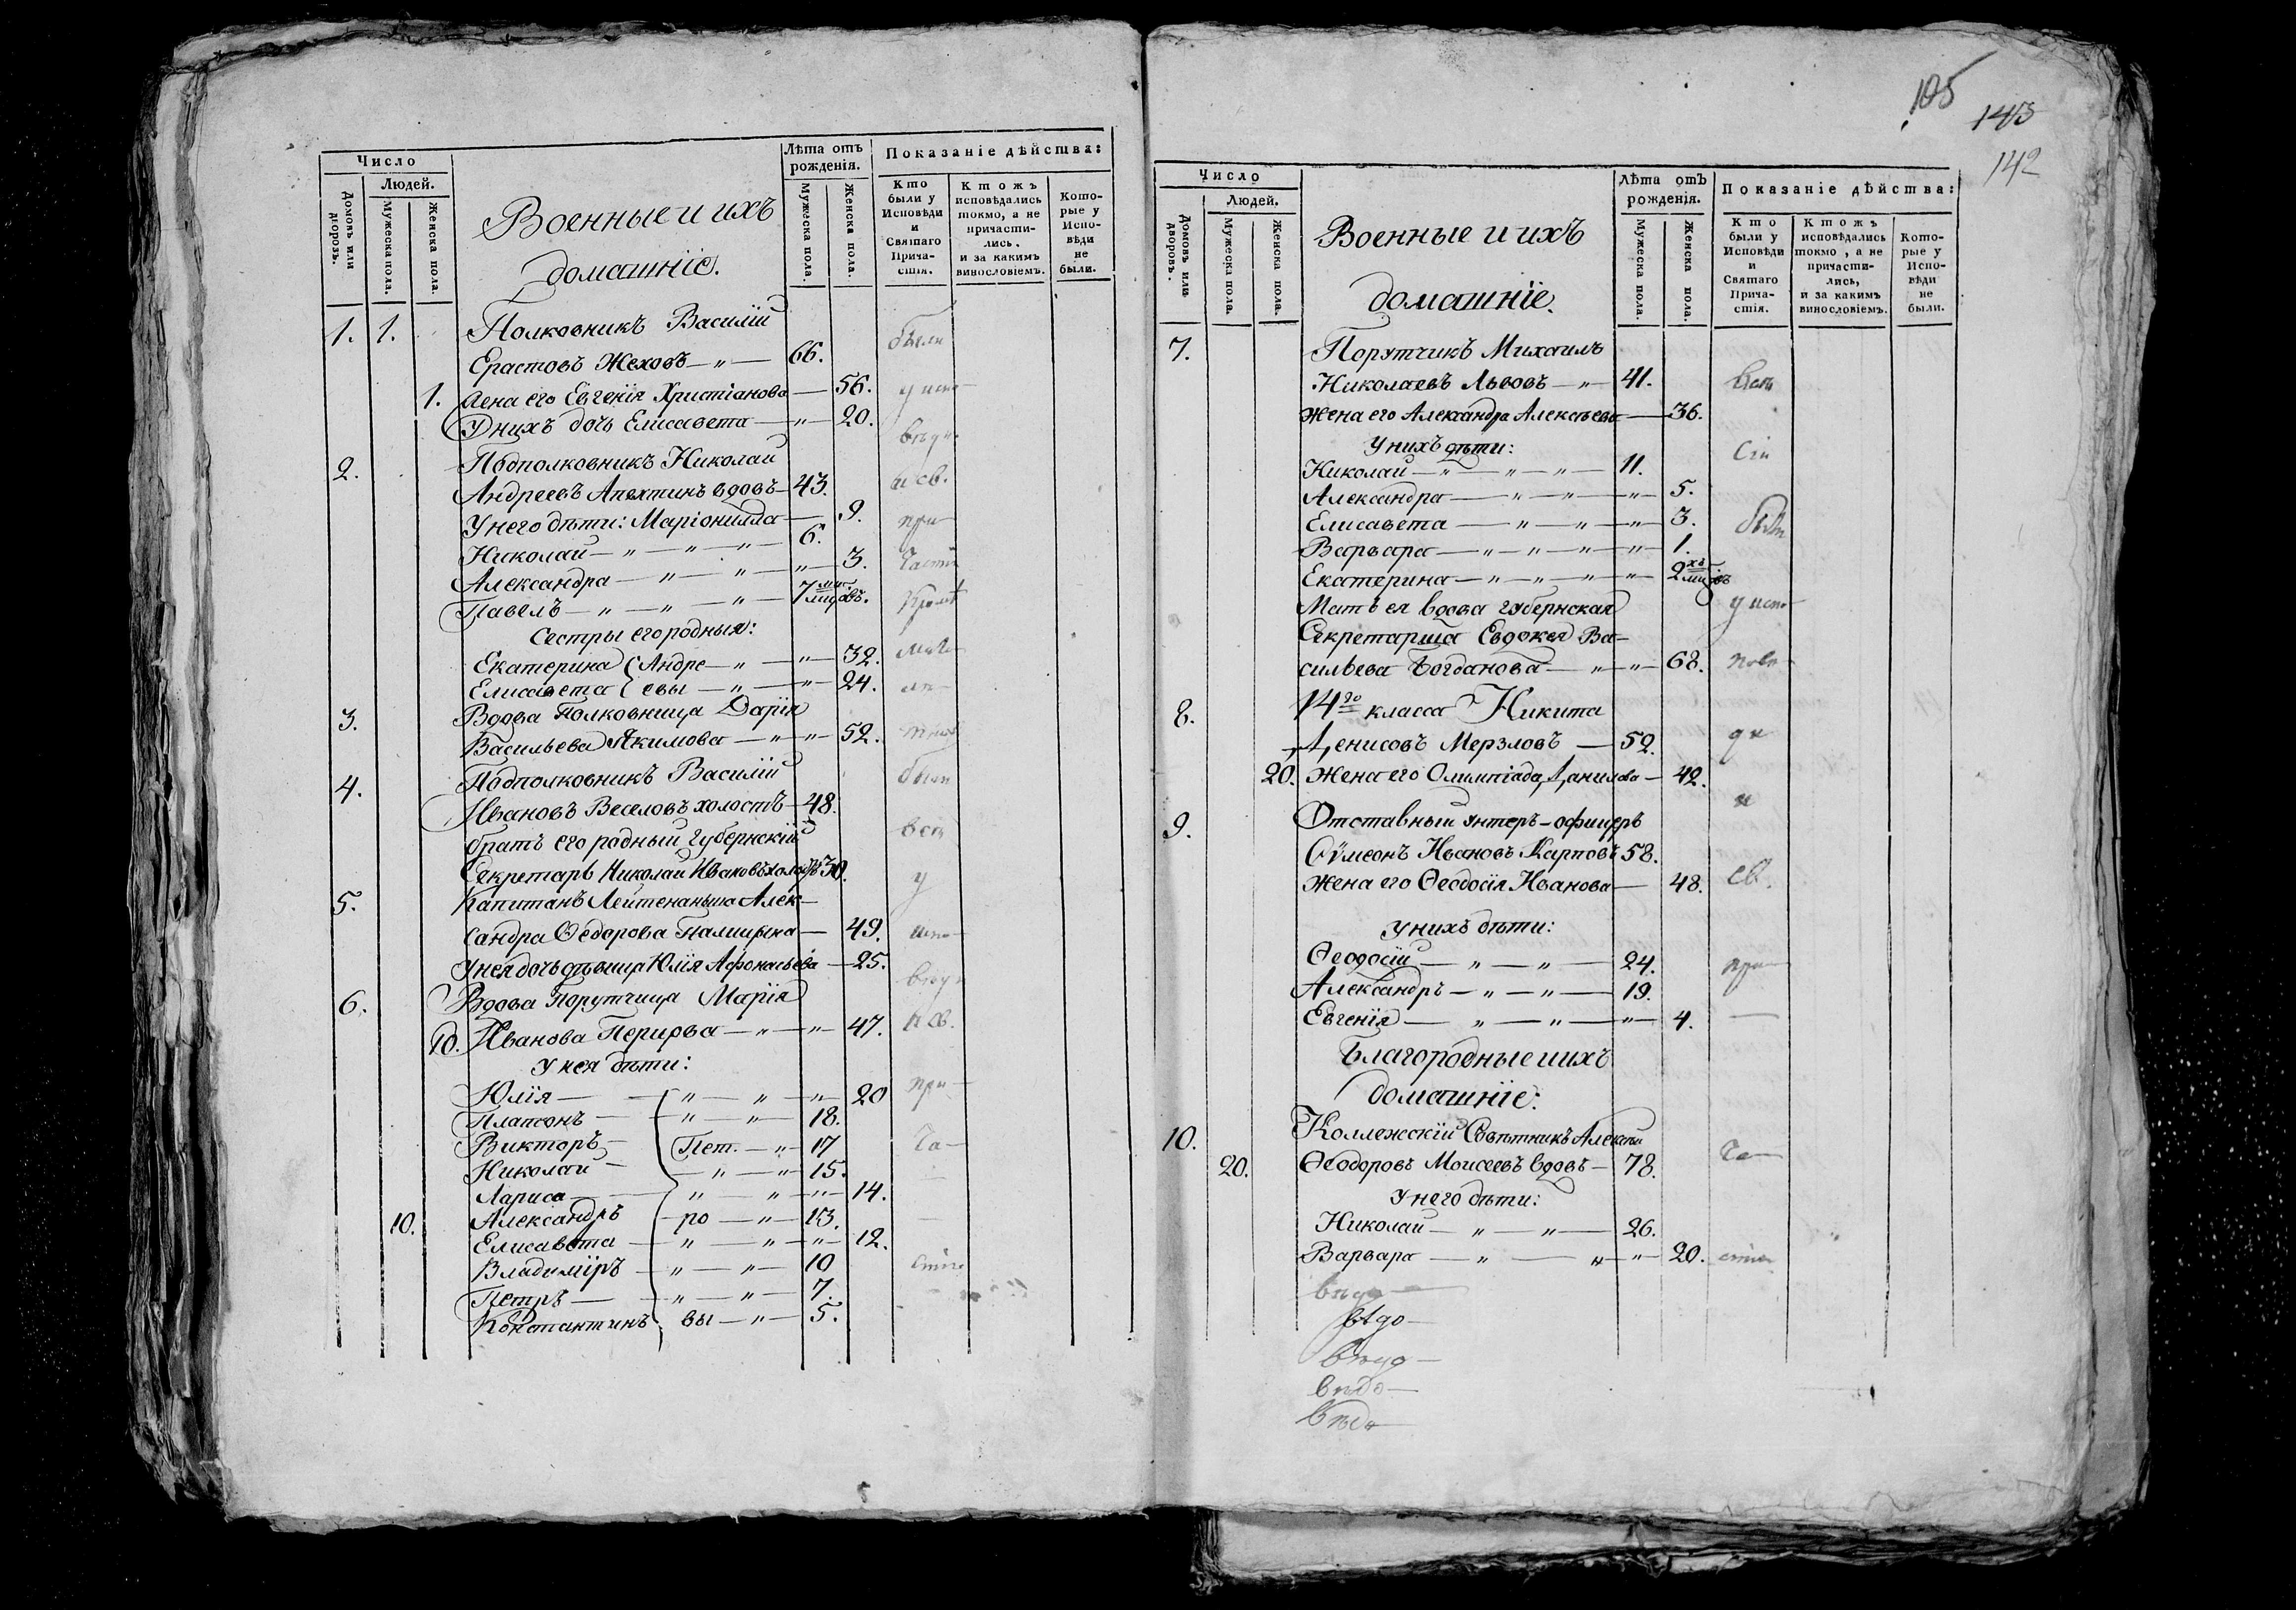 Число
Людей.
Домовъ или дворовъ.
Мужеска пола.
Женска пола.
Военные и ихъ
домашніе.
Лѣта отъ рожденія.
Мужеска пола.
Женска пола.
Показаніе дѣйства:
Кто были у Исповѣди и Святаго Причастія.
Ктожъ исповѣдались токмо, а не причастились, и за какимъ винословіемъ.
Которые у Исповѣди не были.
1. 1. Полковникъ Василій
Ерастовъ Жеховъ — „ — 66. были
1. Жена его Евгенія Христіанова — 56. у испо-
У нихъ дочь Елисавета — „ — 20.
вѣди
2. Подполковникъ Николай
Андреевъ Апехтинъ вдовъ — 43. и св.
У него дѣти: Маріонилла — 9. при-
Николай — „ — „ — „ — 6.
Александра — „ — „ — „ — 3. частія
Павелъ — „ — „ — „ — 7ми мцовъ. Кромѣ
Сестры его родныя:
Екатерина (Андре — „ — „ — 32. мало-
Елисавета ( евы — „ — „ — 24. лѣ-
3. Вдова Полковница Дарія
Васильева Якимова — „ — „ — 52. тныхъ
4. Подполковникъ Василій были
Ивановъ Веселовъ холостъ — 48.
братъ его родный Губернскій всѣ
Секретарь Николай Ивановъ холостъ 30. у
5. Капитанъ Лейтенанша Алек-
сандра Ѳедорова — 49. испо-
У нея дочь дѣвица Юлія Афонасьева — 25. вѣди
6. Вдова Порутчица Марія
10. Иванова — „ — „ — 47. и св.
У нея дѣти:
Юлія — „ — „ — „ — 20 при-
Платонъ — „ — „ — 18.
Викторъ — Пет. — „ — 17 ча-
Николай — „ — „ — 15.
Лариса — „ — „ — „ — 14.
10. Александръ — ро — „ — 13.
Елисавета — „ — „ — „ — 12.
Владиміръ — „ — „ — 10 стія
Петръ — „ — „ — 7.
Константинъ вы — „ — 5.
105
143
142
Число
Людей.
Домовъ или дворовъ.
Мужеска пола.
Женска пола.
Военные и ихъ
домашніе.
Лѣта отъ рожденія.
Мужеска пола.
Женска пола.
Показаніе дѣйства:
Кто были у Исповѣди и Святаго Причастія.
Ктожъ исповѣдались токмо, а не причастились, и за какимъ винословіемъ.
Которые у Исповѣди не были.
7. Порутчикъ Михаилъ
Николаевъ Львовъ — „ — 41. Всѣ
Жена его Александра Алексѣева — 36.
У нихъ дѣти: Сіи
Николай — „ — „ — „ — 11.
Александра — „ — „ — „ — 5.
Елисавета — „ — „ — „ — 3. были
Варвара — „ — „ — „ — „ — 1.
Екатерина — „ — „ — „ — „ — 2хъ мцовъ
Мать ея вдова губернская у испо-
Секретарша Евдокея Ва-
сильева Богданова — „ — „ — 68.
8. 14го класса Никита
Денисовъ Мерзловъ — 52. ди
20. Жена его Олимпіада Данилова — 42.
и
9. Отставный Унтеръ-офицеръ
Сѵмеонъ Ивановъ Карповъ 58.
Жена его Ѳеодосія Иванова — 48. св.
У нихъ дѣти:
Ѳеодосій — „ — „ — 24. при-
Александръ — „ — „ — 19.
Евгенія — „ — „ — „ — 4.
Благородные и ихъ
домашніе:
10. Коллежскій Совѣтникъ Алексѣй
20. Ѳеодоровъ Моисеевъ вдовъ — 78. ча-
У него дѣти:
Николай — „ — „ — 26.
Варвара — „ — „ — „ — 20. стія
вѣдо-
вѣдо-
вѣдо-
вѣдо-
вѣдо-